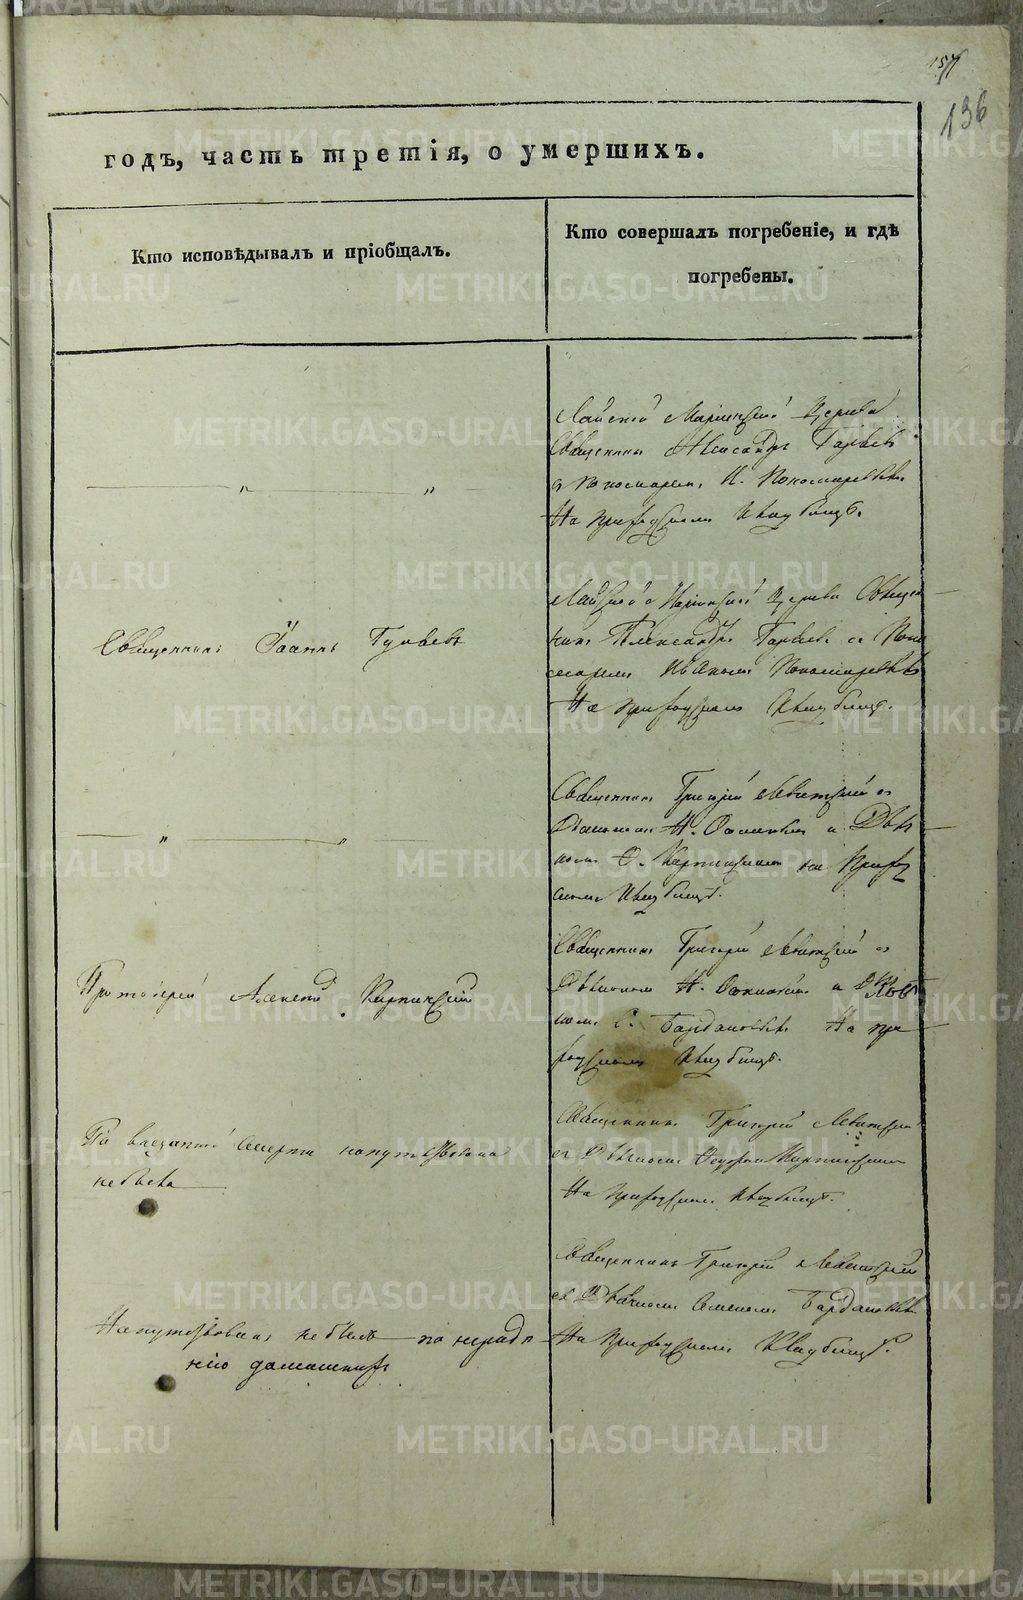 136
годъ, часть третія, о умершихъ.
Кто исповѣдывалъ и пріобщалъ.
Кто совершалъ погребеніе, и гдѣ
погребены.
Лайской Маріинской Церкви
Священникъ Александръ
съ пономаремъ И. Пономаревымъ
На приходскомъ кладбищѣ.
Священникъ Іоаннъ
Лайской Маріинской Церкви Священ
никъ Александръ съ Поно
маремъ Иваномъ Пономаревымъ
На приходскомъ кладбищѣ.
Священникъ Григорій Левитскій съ
Діакономъ и Дьяч
комъ на приход
скомъ кладбищѣ.
Протоіерей Алексій Карпинскій
Священникъ Григорій Левитскій съ
и Дьяч
комъ На при
ходскомъ кладбищѣ.
По внезапной смерти напутствована
не была
Священникъ Григорій Левитскій
съ Дьячкомъ
На приходскомъ кладбищѣ.
Напутствованъ не былъ по нерадѣ
нію домашнихъ
Священникъ Григорій Левитскій
съ Дьячкомъ Семеномъ
На приходскомъ кладбищѣ.
METRIKI.GASO-URAL.RU